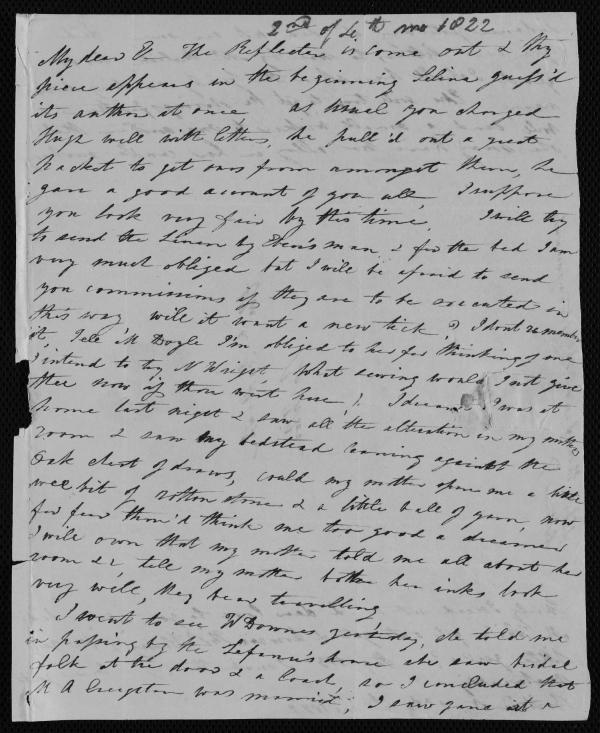 2nd of 4th mo 1822
My dear E— The Reflecter is come out & thy
piece appears in the beginning Selina guess'd
its author at once, as usual you charged
Hugh well with letters, he pull'd out a great
packet to get ours from amongst them, he
gave a good account of you all, I suppose
you look very fair by this time, I will try
to send the Linen by Eben's man, & for the bed I am
very much obliged but I will be afraid to send
you commissions if they are to be executed in
this way will it want a new tick? I dont remember
it, Tell M Doyle I'm obliged to her for thinking of me
I intend to try N Wright What sewing would I not give
thee now if thou wert here!, I dreamt I was at
home last night & saw all the alteration in my mothers
room & saw my bedstead leaning against the
Oak chest of draws, could my mother spare me a little
wee bit of rotton stone & a little ball of yarn, now
for fear thou'd think me too good a dreamer
I will own that my mother told me all about her
room &c, tell my mother bothe her inks look
very well, they bear travelling
I went to see W Downes yesterday, she told me
in passing by the Lefanu's house she saw bridal
folk at the door & a Coach, so I concluded that
M A was married, I saw Jane at a